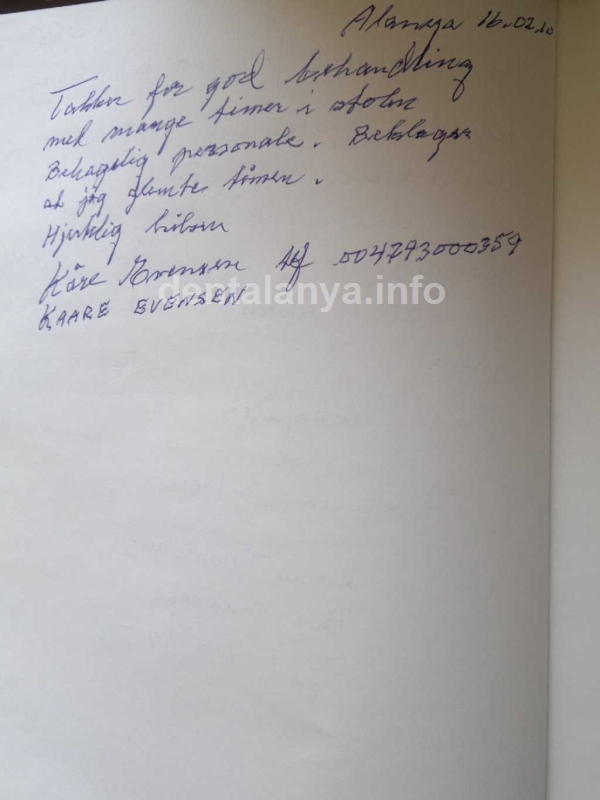 Alanya 16.02.10
Takker for god behandling
med mange timer i stolen
Behagelig personale. Beklager
at jag glemte timen.
Hjertelig hilsen
Kåre Evensen tlf 004793000359
dentalanya.info
KAARE EVENSEN